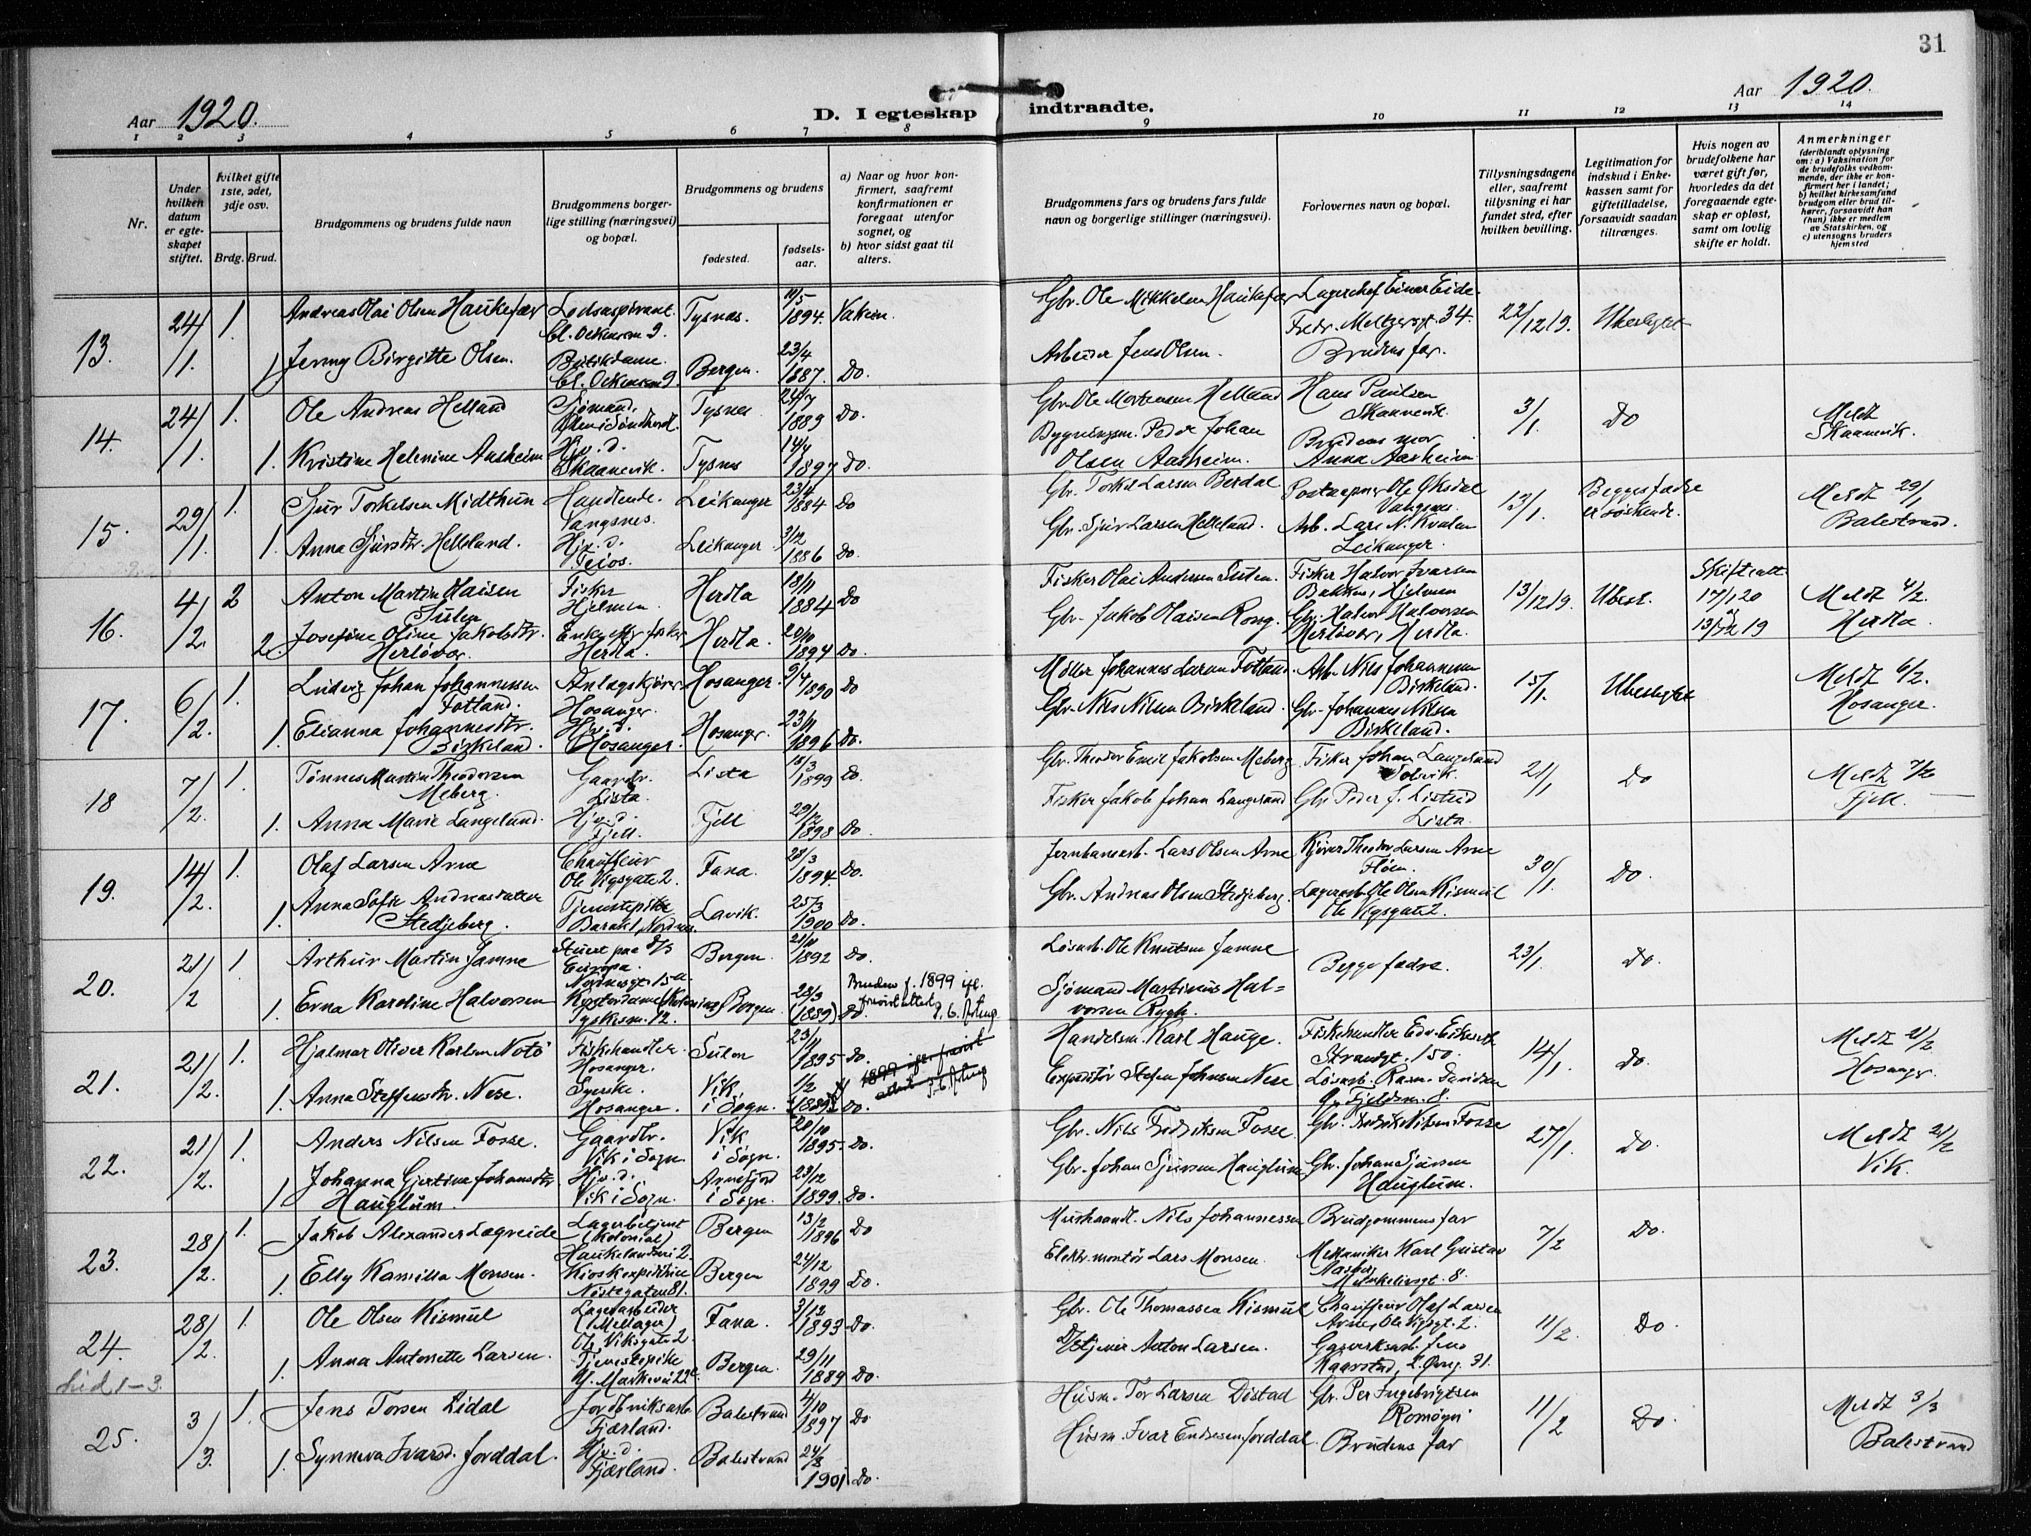 31
Aar 1920.
D. I egteskap indtraadte.
Aar 1920.
1 2 3 4 5 6 7 8 9 10 11 12 13 14
Nr.
Under hvilken datum er egteskapet stiftet.
hvilket gifte 1ste, 2det, 3dje osv.
Brdg. Brud.
Brudgommens og brudens fulde navn
Brudgommens borgerlige stilling (næringsvei) og bopæl.
Brudgommens og brudens
fødested.
fødselsaar.
a) Naar og hvor konfirmert, saafremt konfirmationen er foregaat utenfor sognet, og
b) hvor sidst gaat til alters.
Brudgommens fars og brudens fars fulde navn og borgerlige stillinger (næringsvei).
Forlovernes navn og bopæl.
Tillysningsdagene eller, saafremt tillysning ei har fundet sted, efter hvilken bevilling.
Legitimation for indskud i Enkekassen samt for giftetilladelse, forsaavidt saadan tiltrænges.
Hvis nogen av brudefolkene har været gift før, hvorledes da det foregaaende egteskap er opløst, samt om lovlig skifte er holdt.
Anmerkninger
(deriblandt oplysning om: a) Vaksination for de brudefolks vedkommende, der ikke er konfirmert her i landet; b) hvilket kirkesamfund brudgom eller brud tilhører, forsaavidt han (hun) ikke er medlem av Statskirken, og c) utensogns bruders hjemsted
13. 24/1. 1. Andreas Olai Olsen Haukefær Tysnes. 1894. Gbr. Ole Mikkelsen Haukefær Lagerchef Einar Eide. Fredr. Meltzersgt. 34. 22/12 19. Ubeslegtet
1 Jenny Birgitte Olsen. Bergen. 23/4 1887. Do. Arbeider Jens Olsen. Brudens far.
14. 24/1. 1. Ole Andreas Helland Sjømand, Tysnes 24/7 1889 Do. Gbr. Ole Mortensen Helland Hans Paulsen Skaanevik 3/1. Do Meldt Skaanevik.
1. Kristine Helenine Aasheim Hj. d. Skaanevik. Tysnes 1897 Do. Bygningsm. Peder Johan Olsen Aasheim. Brudens mor Anna Aasheim
15. 29/1. 1. Sjur Torkelsen Midthun Handlende. Vangsnes. Leikanger 23/4 1884 Do Gbr. Torkel Larsen Berdal Postaapner Ole Oksdal Vangsnes. 13/1. Begges fædre er søskende. Meldt 29/1 Balestrand.
1. Anna Sjursdtr. Helleland. Hj. d. Feios. Leikanger 3/12 1886 Do. Gbr. Sjur Larsen Helleland. Arb. Lars N. Kvalen Leikanger.
16. 4/2. 2 Anton Martin Olaisen Fisker Hjelmen. Herdla 18/11 1884 Do Fisker Olai Andersen Fisker Halvor Ivarsen Bakken, Hjelmen 13/12 19. Ubesl. Skifteatt. 17/1 20 Meldt 4/2. Herdla
2 Josefine Oline Jakobsdtr. Herløvær. Herdla. Herdla. 20/10 1894 Do. Gbr. Jakob Olaisen Rong. Herløver, Herdla.
17. 6/2. 1. Ludvig Johan Johannessen Fotland. Anlægskjører Hosanger. Hosanger. 9/4 1890 Do Møller Johannes Larsen Fotland. Arb. Nils Johannessen Birkeland. 15/1. Ubeslegtet Meldt 6/2. Hosanger.
1. Elianna Johannesdtr. Birkeland. Hj. d. Hosanger. Hosanger. 23/11 1896 Do. Gbr. Nils Nilsen Birkeland. Gbr. Johannes Nilsen Birkeland.
18 7/2. 1. Tønnes Martin Theodorsen Meberg. Gaardbr. Lista. Lista 18/3 1899 Do. Gbr. Theodor Emil Jakobsen Meberg. Fisker Johan Langeland Solvik. 21/1 Do Meldt 7/2 Fjell.
1. Anna Marie Langeland. Hj. d. Fjell. Fjell 29/12 1898 Do. Fisker Jakob Johan Langeland Gbr. Peder J. Listrud Lista.
19. 14/2. 1. Olaf Larsen Arne Chauffeur Ole Vigsgate 2. Fana. 28/3 1894. Do. Jernbanearb. Lars Olsen Arne Kjører Theodor Larsen Arne Fløen. 30/1. Do.
1 Anna Sofie Andreasdatter Stedjeberg. Tjenestepike Barakk 1, Nordnes. Lavik. 25/3 1900 Do. Gbr. Andreas Olsen Stedjeberg. Lagerarb. Ole Olsen Kismul Ole Vigsgate 2.
20. 21/2 1. Arthur Martin Jamne Stuert paa D/S Europa. Nordnesgt. 15a Bergen. 21/11 1892 Do. Løsarb. Ole Knutsen Jamne Begge fædre. 23/1. Do.
1. Erna Karoline Halvorsen Kontordame (Kolonial) Tyskesm. 12. Bergen. 28/3 (1889) Do. Bruden f. 1899 ifl. Sjømand Martinus Halvorsen Rygh.
21. 21/2. 1. Hjalmar Oliver Karlsen Notø Fiskehandler. Hosanger. 23/11 1895 Do. Handelsm. Karl Hauge. Fiskehandler Edv. Strandgt. 150. 14/1. Do. Meldt 21/2 Hosanger.
1. Anna Steffensdtr. Nese. Syerske. Hosanger. Vik i Sogn. 1/2 Do. Expeditør Steffen Johnsen Nese Løsarb. Rasm. Davidsen
22. 21/2. 1. Anders Nilsen Fosse. Gaardbr. Vik i Sogn. Vik i Sogn. 20/10 1895. Do. Gbr. Nils Fredriksen Fosse. Gbr. Fredrik Nilsen Fosse 27/1. Do. Meldt 21/2 Vik.
1 Johanna Gjertine Johansdtr. Hauglum. Hj. d. Vik i Sogn. Arnefjord i Sogn. 23/12 1899. Do. Gbr. Johan Sjursen Hauglum Gbr. Johan Sjursen Hauglum.
23. 28/2. 1. Jakob Alexander Lægreide Lagerbetjent (Kolonial) Haukelandsvei 2. Bergen 13/2 1896 Do Mushandl. Nils Johannessen Brudgommens far 7/2 Do.
1. Elly Kamilla Monsen. Kioskexpeditrice Nøstegaten 81. Bergen 24/12 1899 Do. Elektr. montør Lars Monsen. Mekaniker Karl Gustav 8.
24. 28/2. 1. Ole Olsen Kismul Lagerarbeider Ole Vigsgate 2. Fana. 3/12 1893 Do. Gbr. Ole Thomassen Kismul Chauffeur Olaf Larsen Arne, Ole Vigsgt. 2. 11/2. Do.
1. Anna Antonette Larsen. Tjenestepike N. Markevei 22c. Bergen. 29/11 1889 Do. Anton Larsen. Gasverksarb. Jens Kaarstad, 31.
Lid. 1-3.
25. 3/3. 1. Jens Torsen Lidal Jordbruksarb. Fjærland. Balestrand 4/10 1897 Do Husm. Tor Larsen Distad Gbr. Per Ingebrigtsen Romøyri 11/2 Do. Meldt 3/3 Balestrand
1. Synneva Ivarsd. Jorddal. Hj. d. Fjærland. Balestrand 24/3 1901. Do. Husm. Ivar Endresen Jorddal. Brudens far